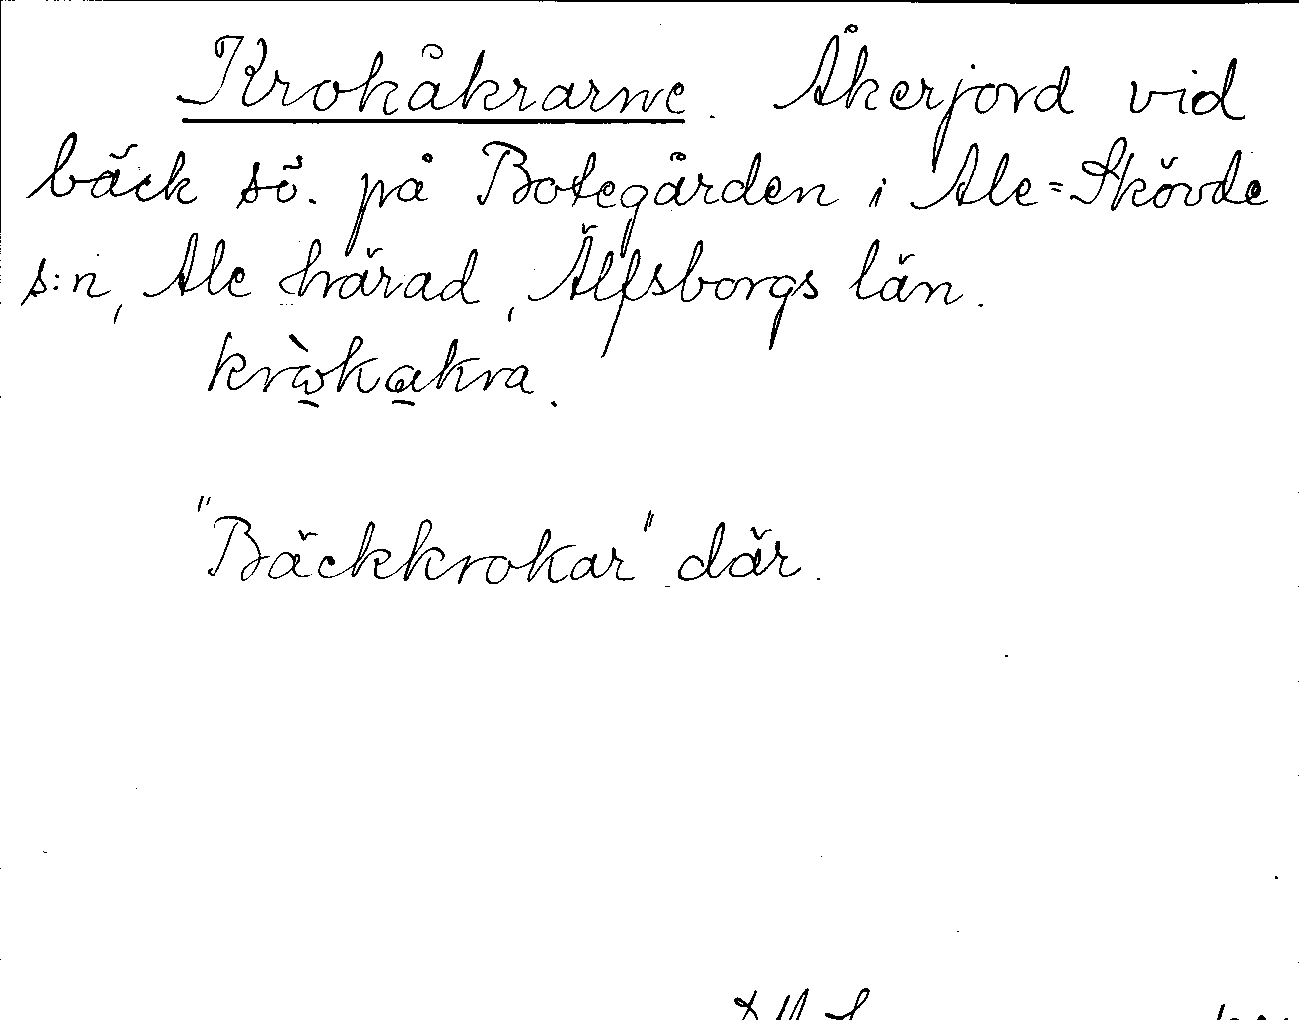 Krokåkrarne. Åkerjord vid
bäck sö. på Botegården i Ale=Skövde
s:n, Ale härad, Älfsborgs län.
kròkakra.
"Bäckkrokar" där.